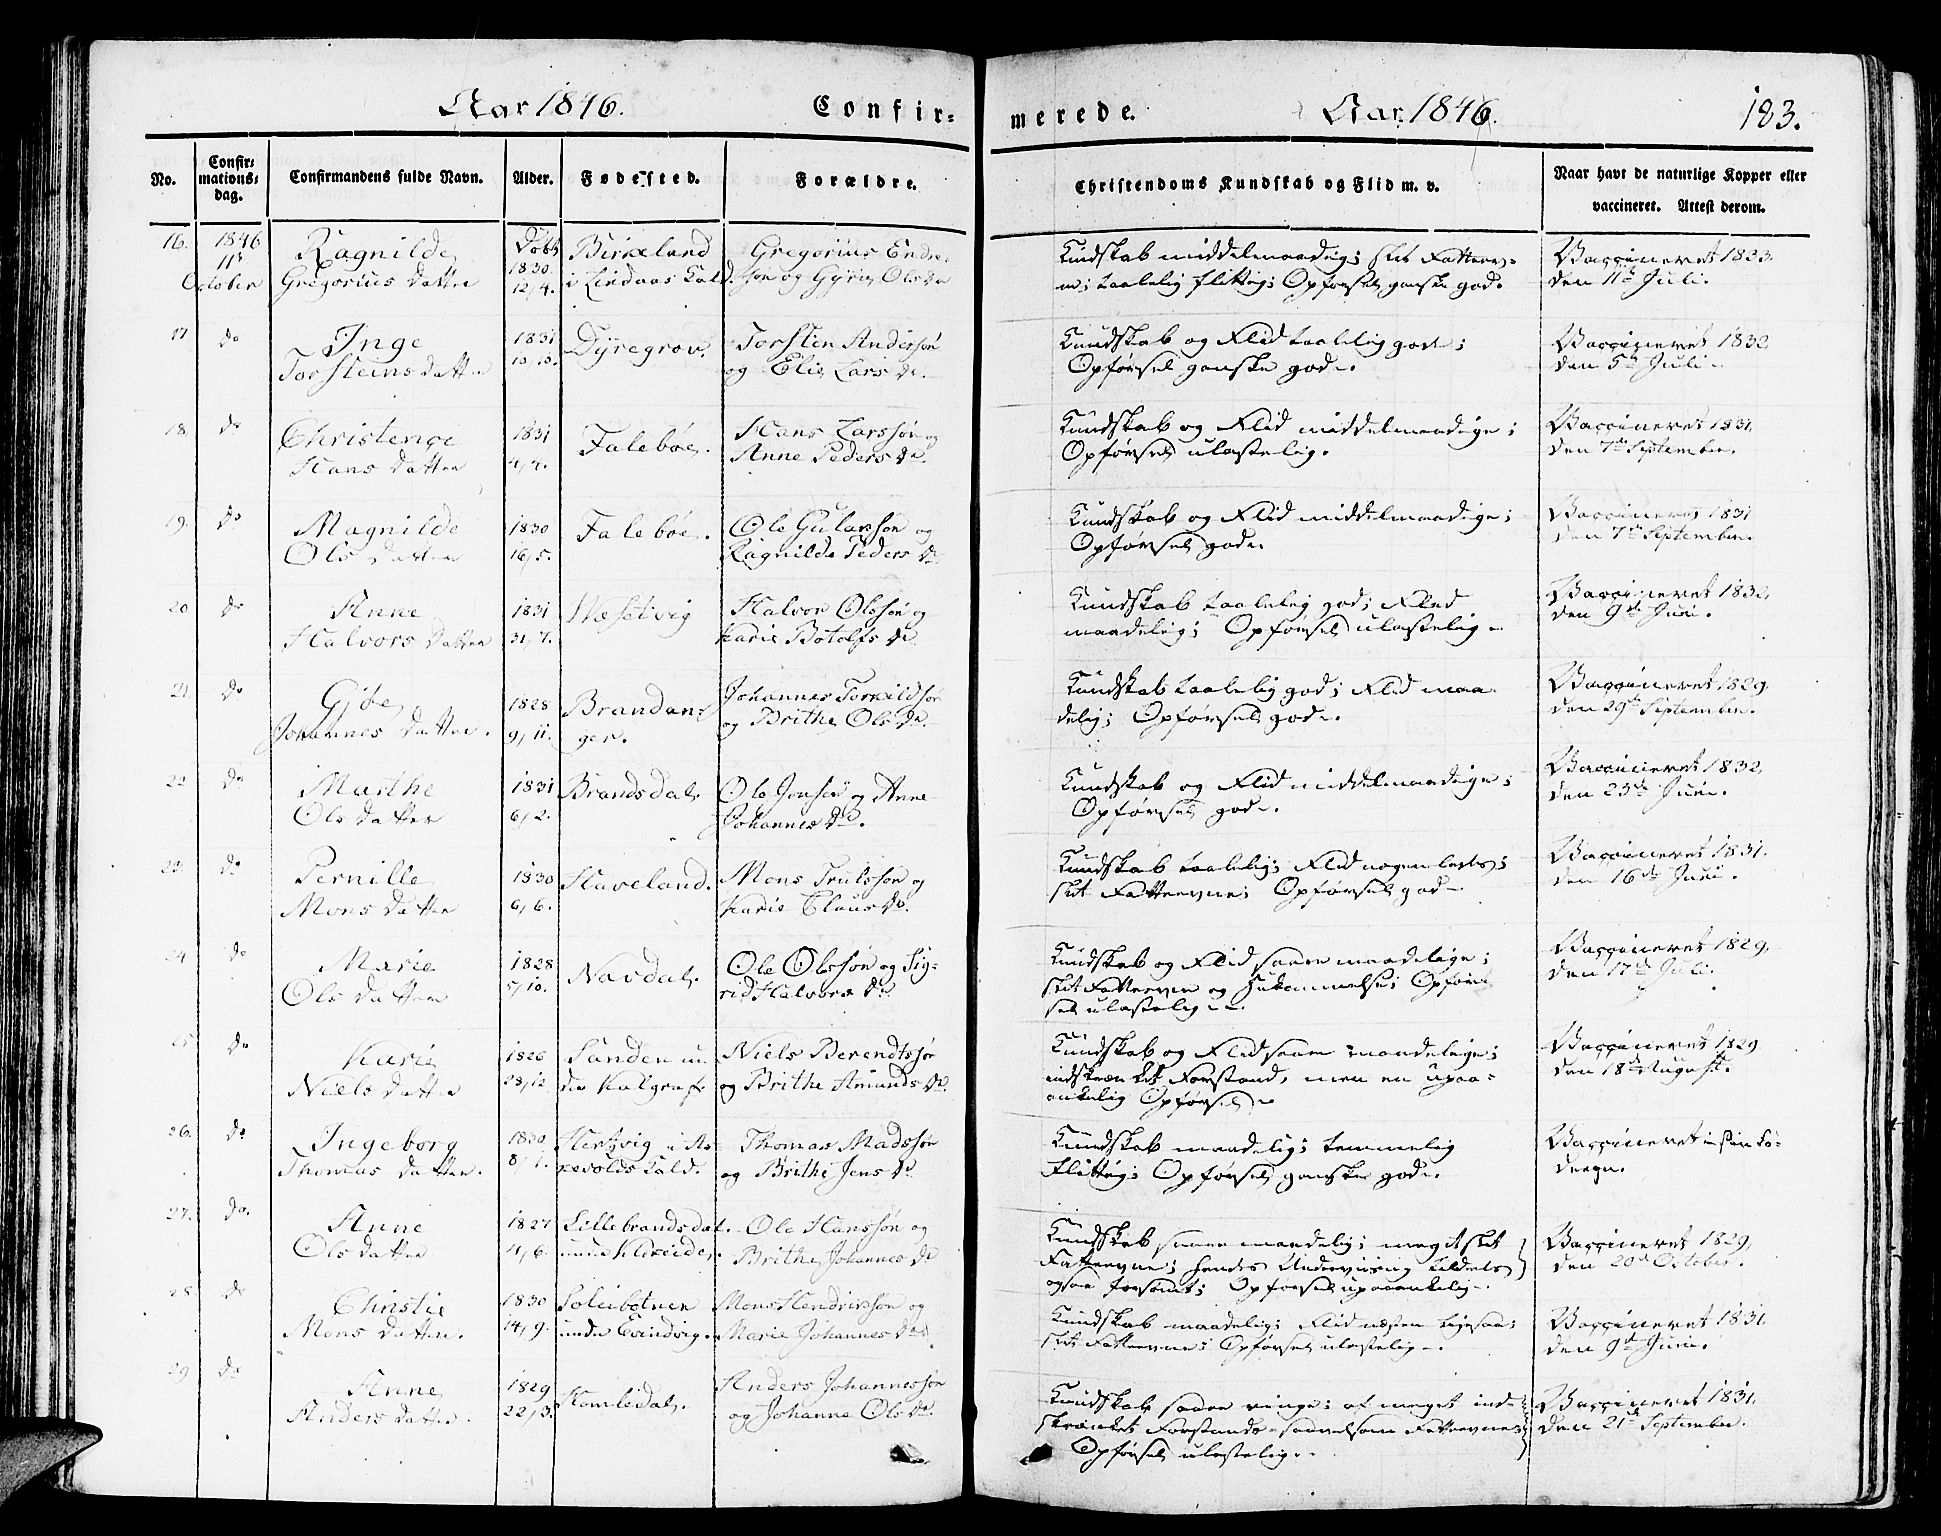 Aar 1846. Confir-
merede. Aar 1846. 183.
No. Confir-mations-dag. Confirmandens fulde Navn. Alder. Fødested. Forældre.
Christendoms Kundskab og Flid m. v. Naar havt de naturlige Kopper eller vaccineret. Attest derom.
16. 1846 Ragnilde Døbt Birkeland Gregorius Endre-
11te 1830
October Gregorius Datter 12/4. i Lindaas Kald. søn og Gyri Ols Dr
Kundskab middelmaadig; slet Fatteev-
ne; taalelig flittig; Opførsel ganske god.
Vaccineret 1833.
den 11te Juli.
17 do Inge 1831 Dyregrov. Torsten Andersøn
Torsteins Datter 10/10. og Eli Lars Dr.
Kundskab og Flid taalelig gode;
Opførsel ganske god.
Vaccineret 1832
den 5te Juli
18. do Christense 1831 Falebøe. Hans Larssøn og
Hans Datter 4/4. Anne Peders Dr.
Kundskab og Flid middelmaadige;
Opførsel ulastelig.
Vaccineret 1831.
den 7de September.
19. Do Magnilde 1830 Falebøe. Ole Gularssøn og
Ols Datter 16/5. Ragnilde Peders Dr
Kundskab og Flid middelmaadige;
Opførsel god.
Vaccineret 1831
den 7de September.
20 Do Anne 1831 Halvor Olssøn og
Halvors Datter 31/7. Karie Botolfs Dr
Kundskab taalelig god; Flid
maadelig; Opførsel ulastelig.
Vaccineret 1832.
den 9de Juni.
21. Do Johannes Torkildsøn
1828 Brandan-
Johannes Datter. 9/11. ger. og Brithe Ols Dr.
Kundskab taalelig god; Flid maa-
delig; Opførsel god.
Vaccineret 1829.
den 29de September.
22 Do Marthe 1831 Brandsdal. Ole Jonsøn og Anne
Ols Datter 6/2. Johannes Dr.
Kundskab og Flid middelmaadige;
Opførsel god.
Vaccineret 1832.
den 23de Juni.
23. Do Pernille 1830 Haveland. Mons Trulssøn og
Mons Datter 6/6. Karie Claus Dr.
Kundskab taalelig; Flid nogenledes;
slet Fatteevne; Opførsel god.
Vaccineret 1831.
den 16de Juni.
24 Do Marie 1828 Navdal. Ole Olssøn og Sig-
Ols Datter 5/10. rid Halvors Dr
Kundskab og Flid saare maadelige;
slet Fatteevne og Hukommelse; Opfør-
sel ulastelig.
Vaccineret 1829.
den 17de Juli.
25 Do Karie 1826 Sanden un- Niels Berendtssøn
Niels Datter 28/12 der og Brithe Amunds Dr.
Kundskab og Flid saare maadelige;
indskrænket Forstand, men en upaa-
ankelig Opførsel.
Vaccineret 1829.
den 18de August.
26. Do Ingeborg 1830 Hertzvig i As- Thomas Madssøn
Thomas Datter. 8/1. kevolds Kald. og Brithe Jens Dr
Kundskab maadelig; temmelig
flittig; Opførsel ganske god.
Vaccineret i sin Fø-
deegn.
27. Do. Anne 1827 Lillebrandsdal. Ole Hanssøn og
Ols Datter 4/6. Brithe Johannes Dr
Kundskab saare maadelig; meget slet
Fatteevne; hendes Underviisning tildels
ogsaa forsømt; Opførsel upaaankelig.
Vaccineret 1829.
den 20de October.
28 Do Christie 1830 Soleibotnen Mons Hendrikssøn og
Mons Datter. 14/9. under Evindvig. Marie Johannes Dr
Kundskab maadelig; Flid næsten ligesaa;
slet Fatteevne; Opførsel ulastelig.
Vaccineret 1831.
den 9de Juni.
29 Do Anne 1829 Homledal. Anders Johannessøn
Anders Datter. 22/3. og Johanne Ols Dr.
Kundskab saare ringe; af meget ind-
skrænket Forstands- saavelsom Fatteevne;
Opførsel ulastelig.
Vaccineret 1831.
den 21de September.